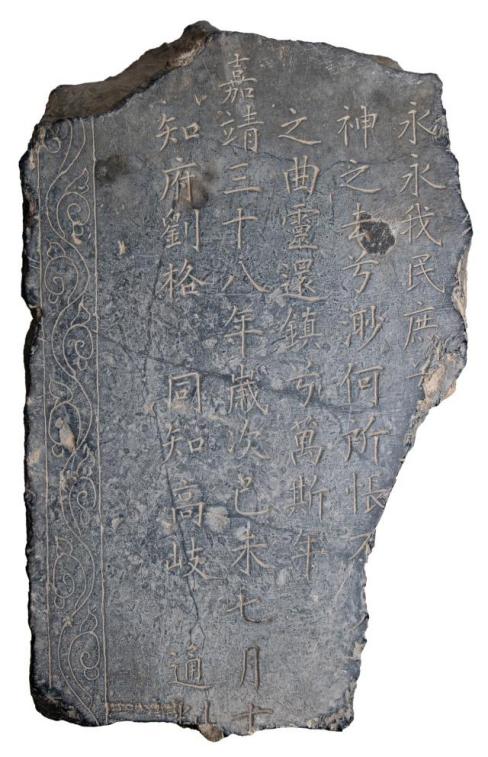 永永我民庶
神之去兮渺何所悵不
之曲靈還鎮兮萬斯年
嘉靖三十八年歲次己未七月十
知府劉格 同知高岐 通